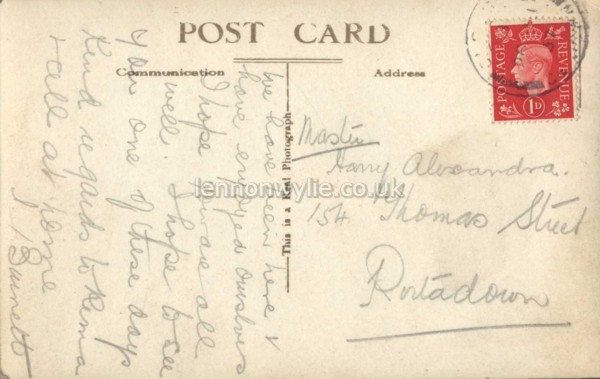 POST CARD
Communication
Address
We have been here &
have enjoyed ourselves
I hope you are all
well. I hope to see
you one of these days
Kind regards to Rema
& all at home
Burnett
This is a Real Photograph
Master
Harry Alexandra.
154 Thomas Street
Portadown
POSTAGE
REVENUE
1D
lennonwylie.co.uk